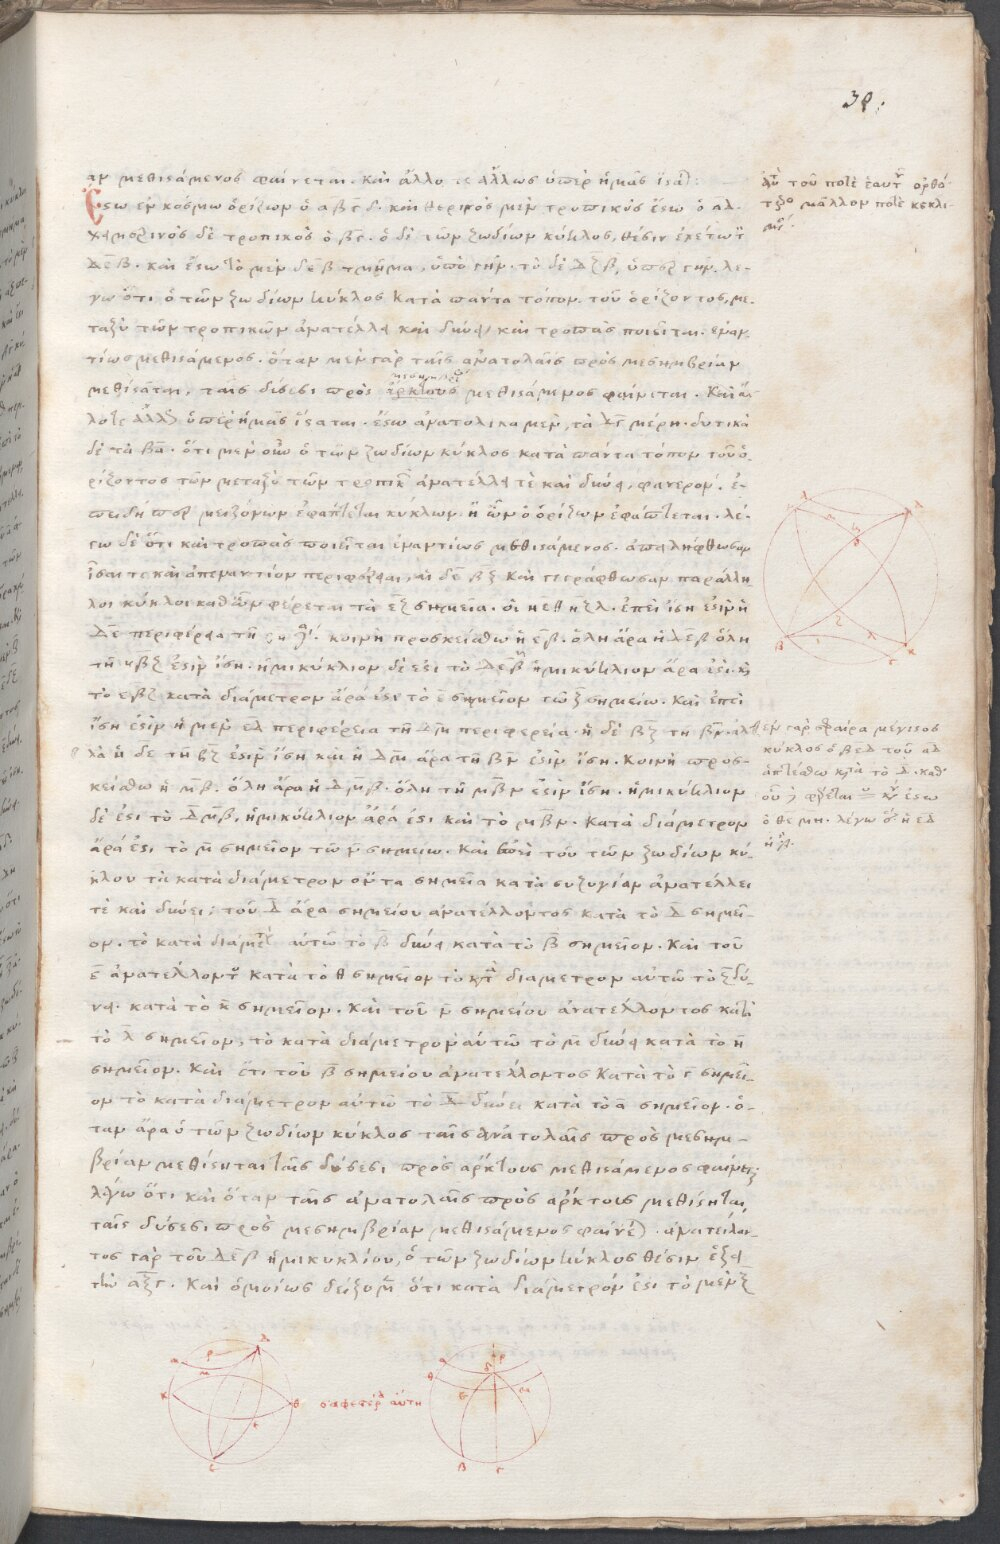 αν μεθιστάμενος φαίνεται. καὶ ἄλλοτε ἄλλως ὑπὲρ ἡμᾶς ἵσταται
Ἔστω ἐν κόσμω ὁρίζων ὁ αβγδ. καὶ θερινὸς μὲν τροπικὸς ἔστω ὁ αδ.
χειμερινὸς δὲ τροπικὸς ὁ βγ. ὁ δὲ τῶν ζωδίων κύκλος, θέσιν ἐχέτω τὴν
δεβ. καὶ ἔστω τὸ μὲν δεβ τμῆμα, ὑπὸ γῆν. τὸ δὲ δζβ, ὑπὲρ γῆν. λέ-
γω ὅτι ὁ τῶν ζωδίων κύκλος κατὰ πάντα τόπον τοῦ ὁρίζοντος, με-
ταξὺ τῶν τροπικῶν ἀνατέλλει καὶ δύνει, καὶ τροπὰς ποιεῖται. ἐναν
τίως μεθιστάμενος. ὅταν μὲν γὰρ ταῖς ἀνατολαῖς πρὸς μεσημβρίαν
μεθίσταται, ταῖς δύσεσι πρὸς ἄρκτους μεθιστάμενος φαίνεται. Καὶ ἄλ
λοτε ἄλλως ὑπὲρ ἡμᾶς ἵσταται. ἔστω ἀνατολικὰ μὲν, τὰ δγ μέρη. δυτικὰ
δὲ τὰ βα. ὅτι μὲν οὖν ὁ τῶν ζωδίων κύκλος κατὰ πάντα τόπον τοῦ ὁ-
ρίζοντος τῶν μεταξὺ τῶν τροπικῶν ἀνατέλλει τὲ καὶ δύνει, φανερόν. ἐ-
πειδήπερ μειζόνων ἐφάπτεται κύκλων ἢ ὧν ὁ ὁρίζων ἐφάπτεται. λέ-
γω δὲ ὅτι καὶ τροπὰς ποιεῖται ἐναντίως μεθιστάμενος. ἀπειλήφθωσαν
ἴσαι τε καὶ ἀπεναντίον περιφέρειαι, αἱ δε βζ καὶ γεγράφθωσαν παράλλη-
λοι κύκλοι καθ' ὧν φέρεται τὰ εζ σημεῖα. οἱ ηεθ κζλ. ἐπεὶ ἴση ἐστὶν ἡ
δε περιφέρεια τῇ. κοινὴ προσκείσθω ἡ εβ. ὅλη ἄρα ἡ δεβ ὅλη
τῇ εβζ ἐστὶν ἴση. ἡμικύκλιον δέ ἐστι τὸ δεβ ἡμικύκλιον ἄρα ἐστὶ καὶ
τὸ εβζ κατὰ διάμετρον ἄρα ἐστὶ τὸ ε σημεῖον τῶ ζ σημείω. Καὶ ἐπεὶ
ἴση ἐστὶν ἡ μὲν εδ περιφέρεια τῇ δμ περιφερεία. ἡ δὲ βζ τῇ βν. ἀλ
λὰ ἡ δε τῇ βζ ἐστὶν ἴση καὶ ἡ δμ ἄρα τῇ βν ἐστὶν ἴση. Κοινὴ προσ-
κείσθω ἡ μβ. ὅλη ἄρα ἡ δμβ. ὅλη τῇ μβν ἐστὶν ἴση. ἡμικύκλιον
δέ ἐστι τὸ δμβ, ἡμικύκλιον ἄρά ἐστι καὶ τὸ μβν. κατὰ διάμετρον
ἄρά ἐστι τὸ μ σημεῖον τῶ ν σημείω. Καὶ ἐπεὶ τοῦ τῶν ζωδίων κύ-
κλου τὰ κατὰ διάμετρον ὄντα σημεῖα κατὰ συζυγίαν ἀνατέλλει
τὲ καὶ δύνει, τοῦ δ ἄρα σημείου ἀνατέλλοντος κατὰ τὸ δ σημεῖ-
ον. τὸ κατὰ διάμετρον αὐτῶ τὸ β δύνει κατὰ τὸ β σημεῖον. Καὶ τοῦ
ε ἀνατέλλοντος κατὰ τὸ θ σημεῖον τὸ κατὰ διάμετρον αὐτῶ τὸ ζ δύ-
νει. κατὰ τὸ κ σημεῖον. Καὶ τοῦ ν σημείου ἀνατέλλοντος κατὰ
τὸ λ σημεῖον, τὸ κατὰ διάμετρον αὐτῶ τὸ μ δύνει κατὰ τὸ η
σημεῖον. Καὶ ἔτι τοῦ β σημείου ἀνατέλλοντος κατὰ τὸ γ σημεῖ-
ον τὸ κατὰ διάμετρον αὐτῶ τὸ δ δύνει κατὰ τὸ α σημεῖον. ὅ-
ταν ἄρα ὁ τῶν ζωδίων κύκλος ταῖς ἀνατολαῖς πρὸς μεσημ-
βρίαν μεθίστηται ταῖς δύσεσι πρὸς ἄρκτους μεθιστάμενος φαίνεται
λέγω ὅτι καὶ ὅταν ταῖς ἀνατολαῖς πρὸς ἄρκτους μεθίστηται,
ταῖς δύσεσι πρὸς μεσημβρίαν μεθιστάμενος φαίνεται. ἀνατείλαν-
τος γὰρ τοῦ δεβ ἡμικυκλίου, ὁ τῶν ζωδίων κύκλος θέσιν ἕξει
τὴν αξγ. Καὶ ὁμοίως δείξομεν ὅτι κατὰ διάμετρόν ἐστι τὸ μὲν ξ
σαφεστέρα αὕτη
αὐτοῦ ποτὲ ἑαυτοῦ ὀρθό-
τερος μᾶλλον ποτὲ κεκλι-
μένος.
ἐν γὰρ σφαίρα μέγιστος
κύκλος ὁ βεδ τοῦ αδ
ἁπτέσθω κατὰ τὸ δ. καθ'
ἔστω
ὁ θεμη. λέγω ὅτι ἡ εδ